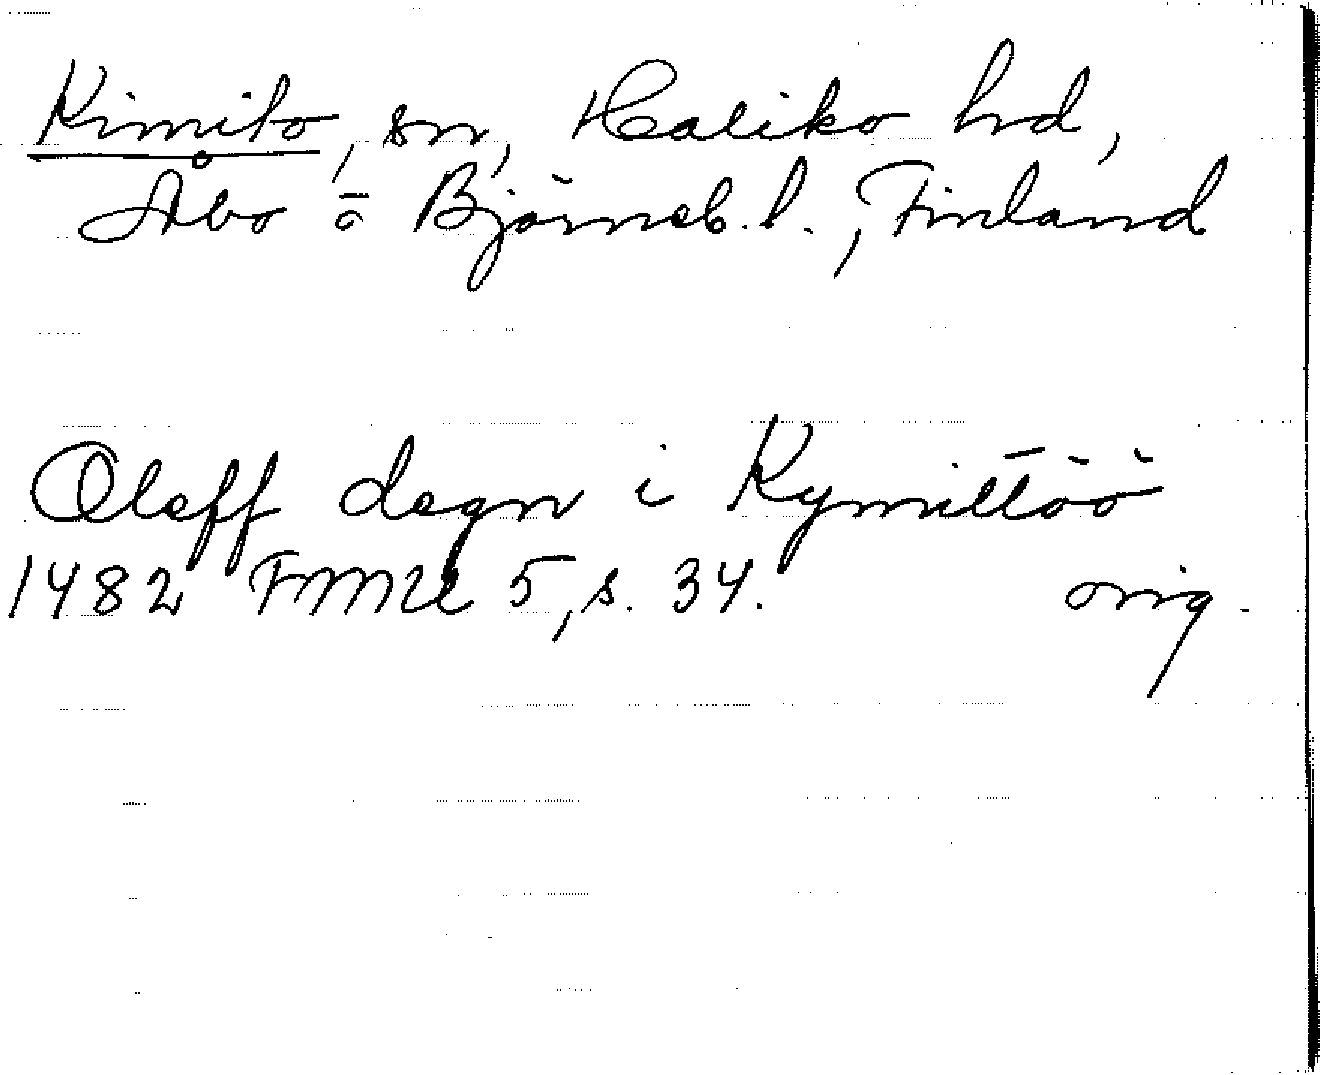 Kimito, sn, Haliko hd,
Åbo o Björneb. l., Finland
Oleff degn i Kymittöö
1482 FMU 5, s. 34. orig.